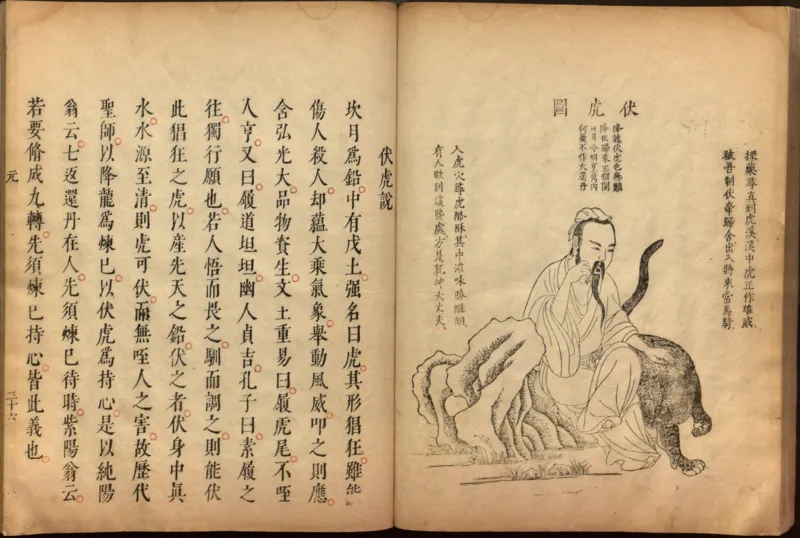 伏虎圖
採藥尋真到虎溪溪中虎正作雄威
被吾制伏牽歸舍出入將來當馬騎
降龍伏虎也無難
降伏歸來玉鎖關
日月分明內
何不作大還丹
入虎穴尋虎酪酥其中滋味勝醍醐
有人到這些處方是乾坤大丈夫
伏虎說
坎月爲鉛中有戊土强名曰虎其形猖狂雖能
傷人殺人却蘊大乘氣象舉動風威叩之則應
含弘光大品物資生文王重易曰履虎尾不咥
人亨又曰履道坦坦幽人貞吉孔子曰素履之
往獨行願也若人悟而畏之馴而調之則能伏
此猖狂之虎以產先天之鉛伏之者伏身中眞
水水源至清則虎可伏而無咥人之害故歷代
聖師以降龍爲煉己以伏虎爲持心是以純陽
翁云七返還丹在人先須煉己待時紫陽翁云
若要脩成九轉先須煉己持心皆此義也
元
三十六